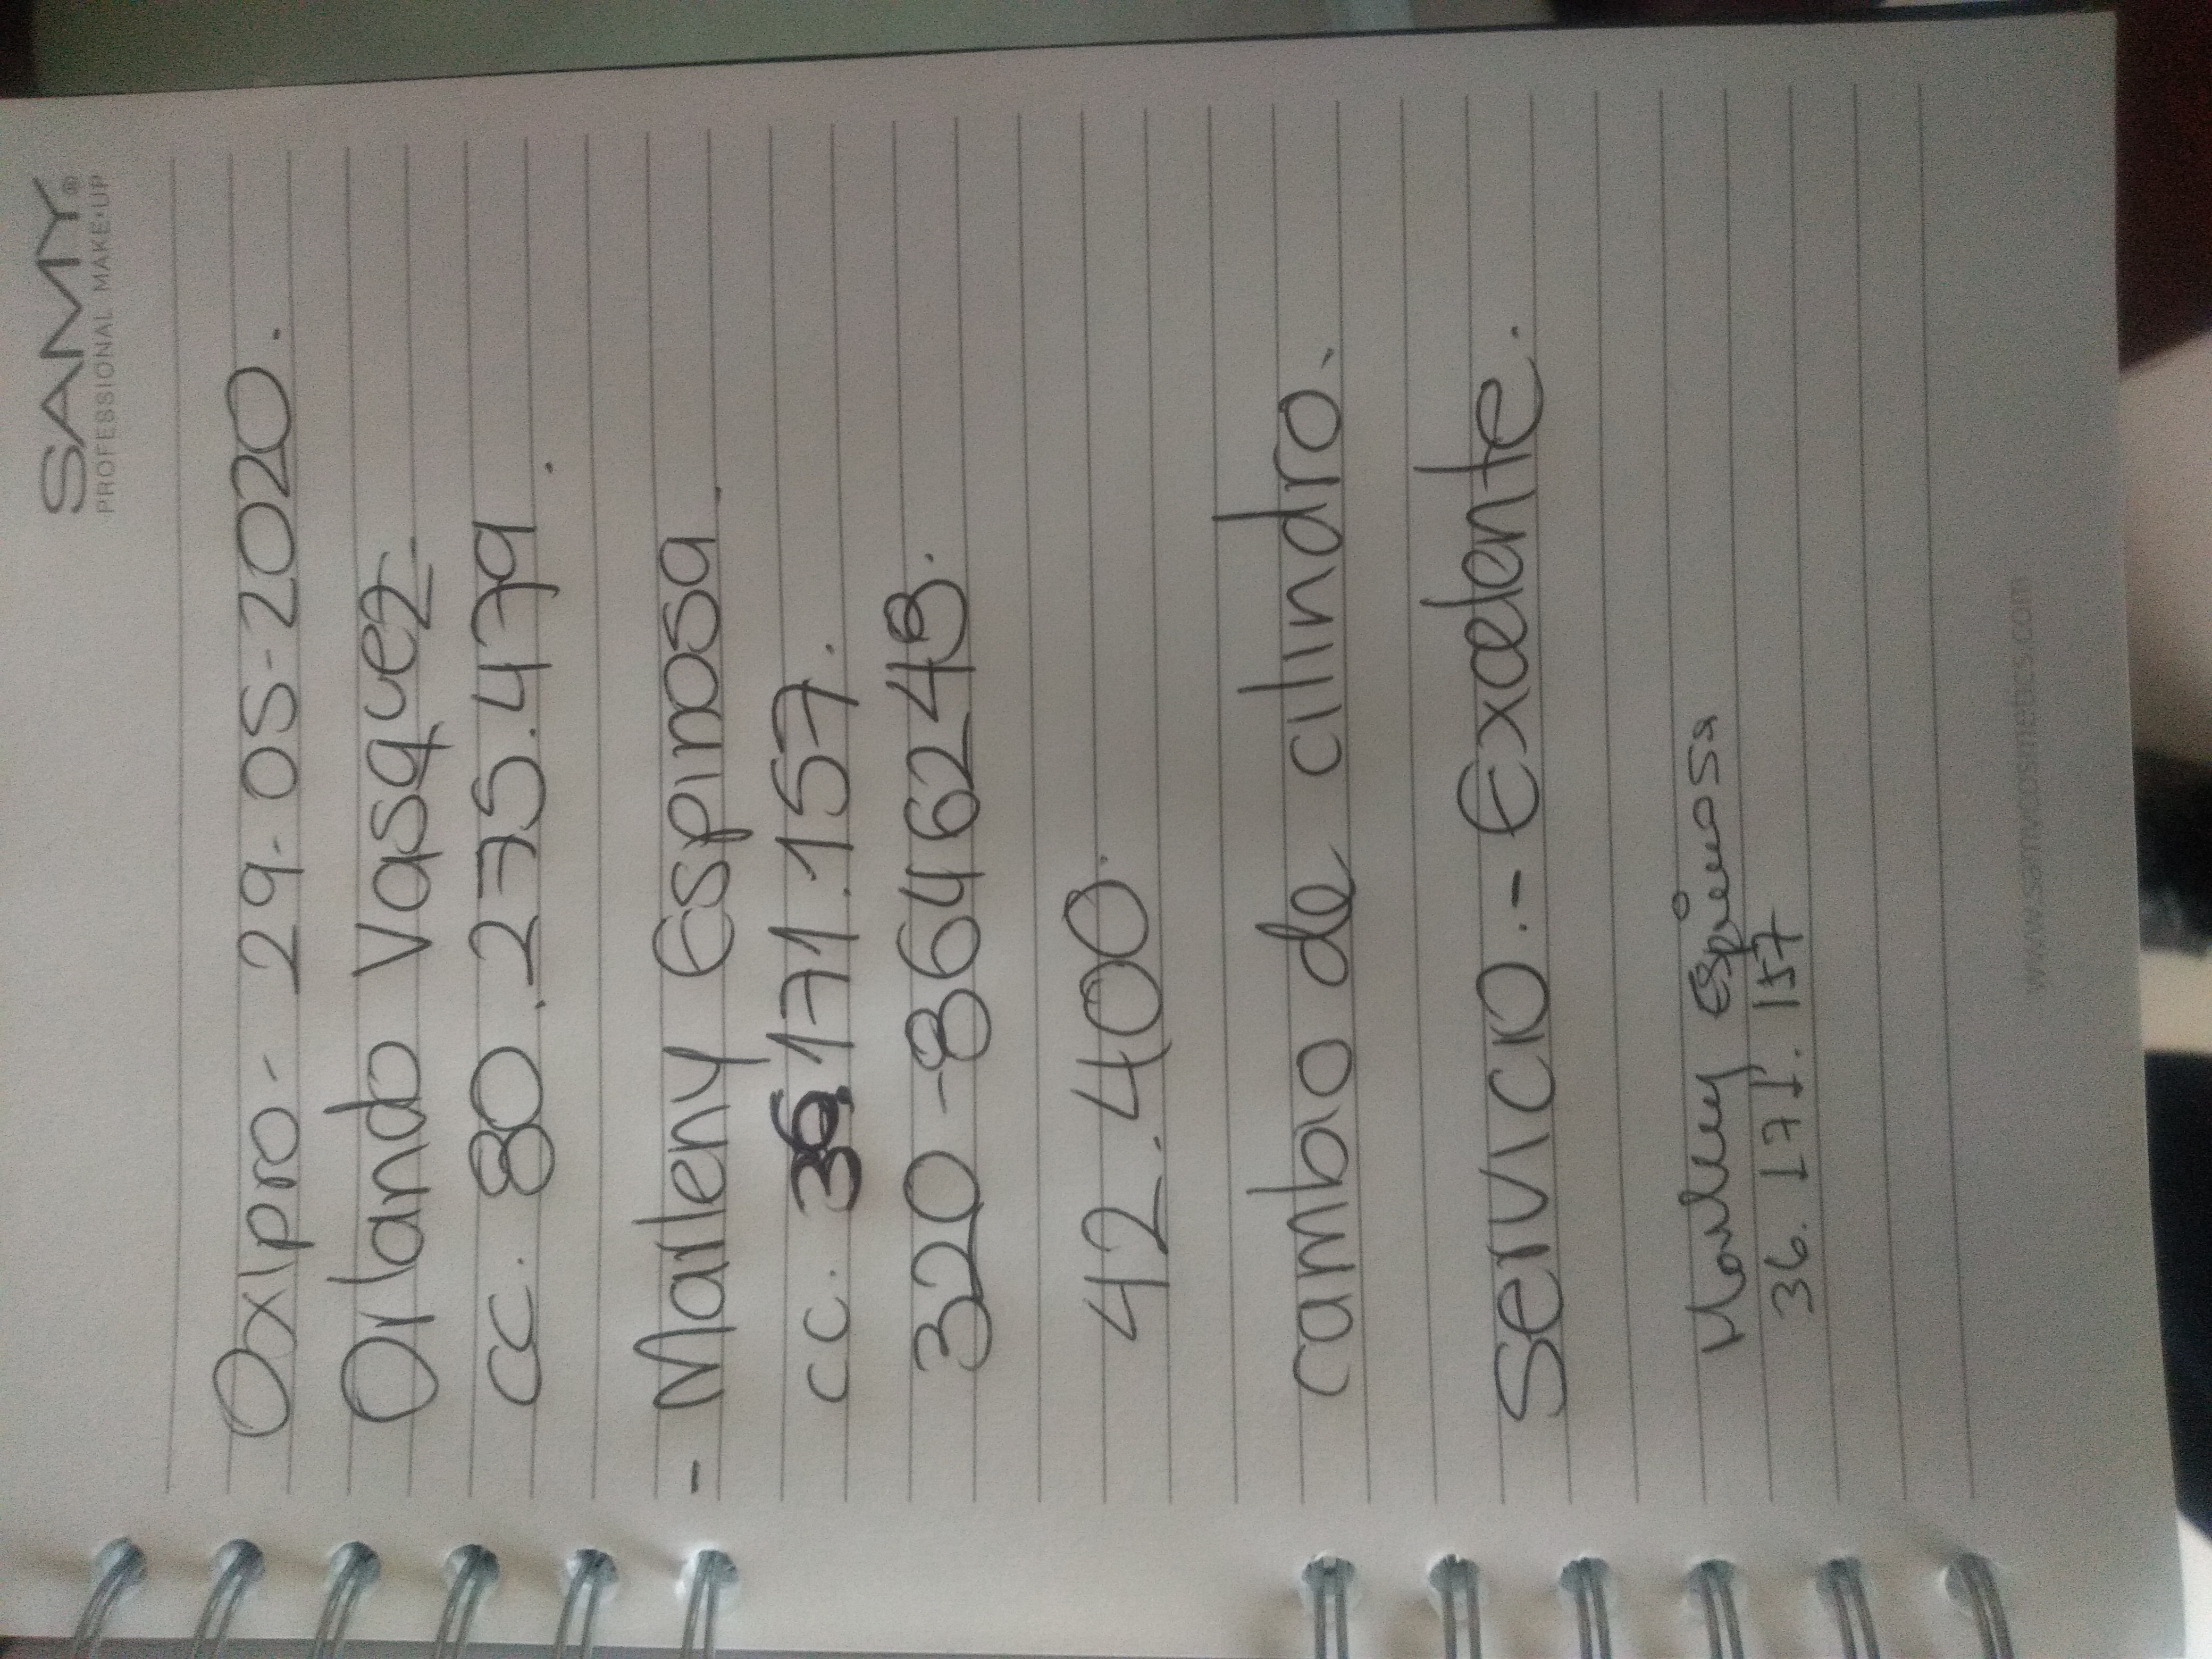 SAMY®
PROFESSIONAL MAKE·UP
Oxipro - 29-05-2020.
Orlando Vasquez
CC. 80.275.479.
- Marleny Espinosa.
CC. 36.171.157.
320-8646243.
42.400.
cambio de cilindro.
Servicio.- Exelente.
Marleny Espinosa
36.171.157
www.samycosmetics.com